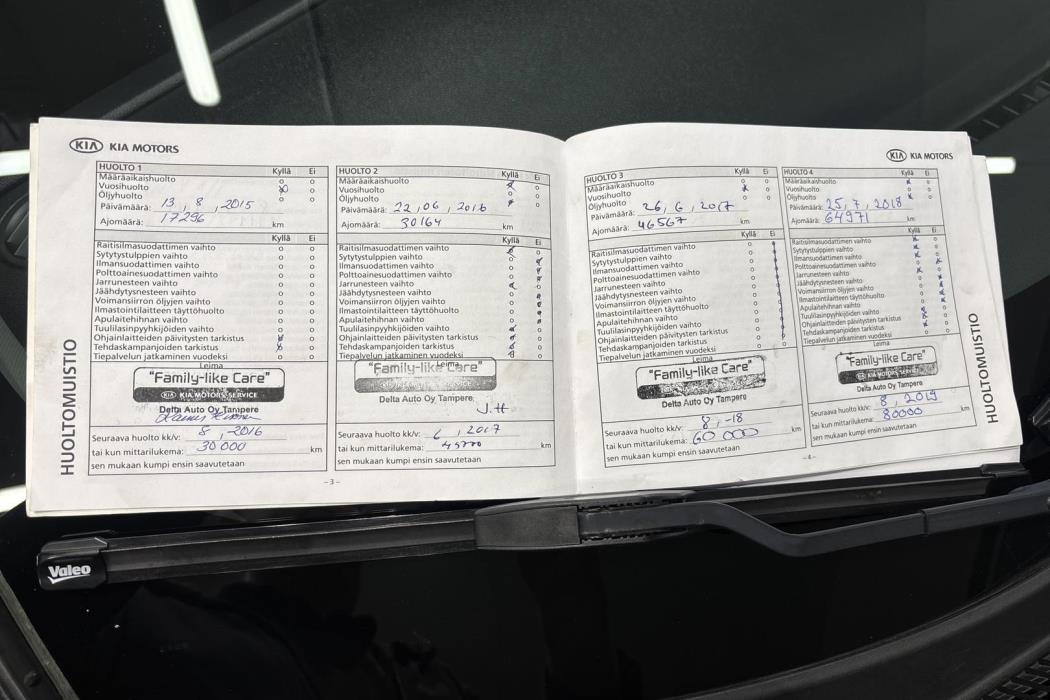 KIA KIA MOTORS
HUOLTO 1
Kyllä Ei
Määräaikaishuolto
Vuosihuolto
Öljyhuolto
Päivämäärä: 13, 8, 2015
Ajomäärä: 17296 km
Kyllä Ei
Raitisilmasuodattimen vaihto
Sytytystulppien vaihto
Ilmansuodattimen vaihto
Polttoainesuodattimen vaihto
Jarrunesteen vaihto
Jäähdytysnesteen vaihto
Voimansiirron öljyjen vaihto
Ilmastointilaitteen täyttöhuolto
Apulaitehihnan vaihto
Tuulilasinpyyhkijöiden vaihto
Ohjainlaitteiden päivitysten tarkistus
Tehdaskampanjoiden tarkistus
Tiepalvelun jatkaminen vuodeksi
Leima
"Family-like Care"
KIA KIA MOTORS SERVICE
Delta Auto Oy Tampere
Seuraava huolto kk/v: 8, 2016
tai kun mittarilukema: 30 000 km
sen mukaan kumpi ensin saavutetaan
HUOLTOMUISTIO
HUOLTO 2
Kyllä Ei
Määräaikaishuolto
Vuosihuolto
Öljyhuolto
Päivämäärä: 22, 06, 2016
Ajomäärä: 30164 km
Kyllä Ei
Raitisilmasuodattimen vaihto
Sytytystulppien vaihto
Ilmansuodattimen vaihto
Polttoainesuodattimen vaihto
Jarrunesteen vaihto
Jäähdytysnesteen vaihto
Voimansiirron öljyjen vaihto
Ilmastointilaitteen täyttöhuolto
Apulaitehihnan vaihto
Tuulilasinpyyhkijöiden vaihto
Ohjainlaitteiden päivitysten tarkistus
Tehdaskampanjoiden tarkistus
Tiepalvelun jatkaminen vuodeksi
Leima
"Family-like Care"
Delta Auto Oy Tampere
J.H
Seuraava huolto kk/v: 6, 2017
tai kun mittarilukema: 45000 km
sen mukaan kumpi ensin saavutetaan
-3-
KIA KIA MOTORS
HUOLTO 3
Kyllä Ei
Määräaikaishuolto
Vuosihuolto
Öljyhuolto
Päivämäärä: 26, 6, 2017
Ajomäärä: 46567 km
Kyllä Ei
Raitisilmasuodattimen vaihto
Sytytystulppien vaihto
Ilmansuodattimen vaihto
Polttoainesuodattimen vaihto
Jarrunesteen vaihto
Jäähdytysnesteen vaihto
Voimansiirron öljyjen vaihto
Ilmastointilaitteen täyttöhuolto
Apulaitehihnan vaihto
Tuulilasinpyyhkijöiden vaihto
Ohjainlaitteiden päivitysten tarkistus
Tehdaskampanjoiden tarkistus
Tiepalvelun jatkaminen vuodeksi
Leima
"Family-like Care"
Delta Auto Oy Tampere
Seuraava huolto kk/v: 8, -18
tai kun mittarilukema: 60 000 km
sen mukaan kumpi ensin saavutetaan
HUOLTO 4
Kyllä Ei
Määräaikaishuolto
Vuosihuolto
Öljyhuolto
Päivämäärä: 25, 7, 2018
Ajomäärä: 64971 km
Kyllä Ei
Raitisilmasuodattimen vaihto
Sytytystulppien vaihto
Ilmansuodattimen vaihto
Polttoainesuodattimen vaihto
Jarrunesteen vaihto
Jäähdytysnesteen vaihto
Voimansiirron öljyjen vaihto
Ilmastointilaitteen täyttöhuolto
Apulaitehihnan vaihto
Tuulilasinpyyhkijöiden vaihto
Ohjainlaitteiden päivitysten tarkistus
Tehdaskampanjoiden tarkistus
Tiepalvelun jatkaminen vuodeksi
Leima
"Family-like Care"
KIA KIA MOTORS SERVICE
Delta Auto Oy Tampere
Seuraava huolto kk/v: 8, 2019
tai kun mittarilukema: 80000 km
sen mukaan kumpi ensin saavutetaan
-4-
HUOLTOMUISTIO
Valeo